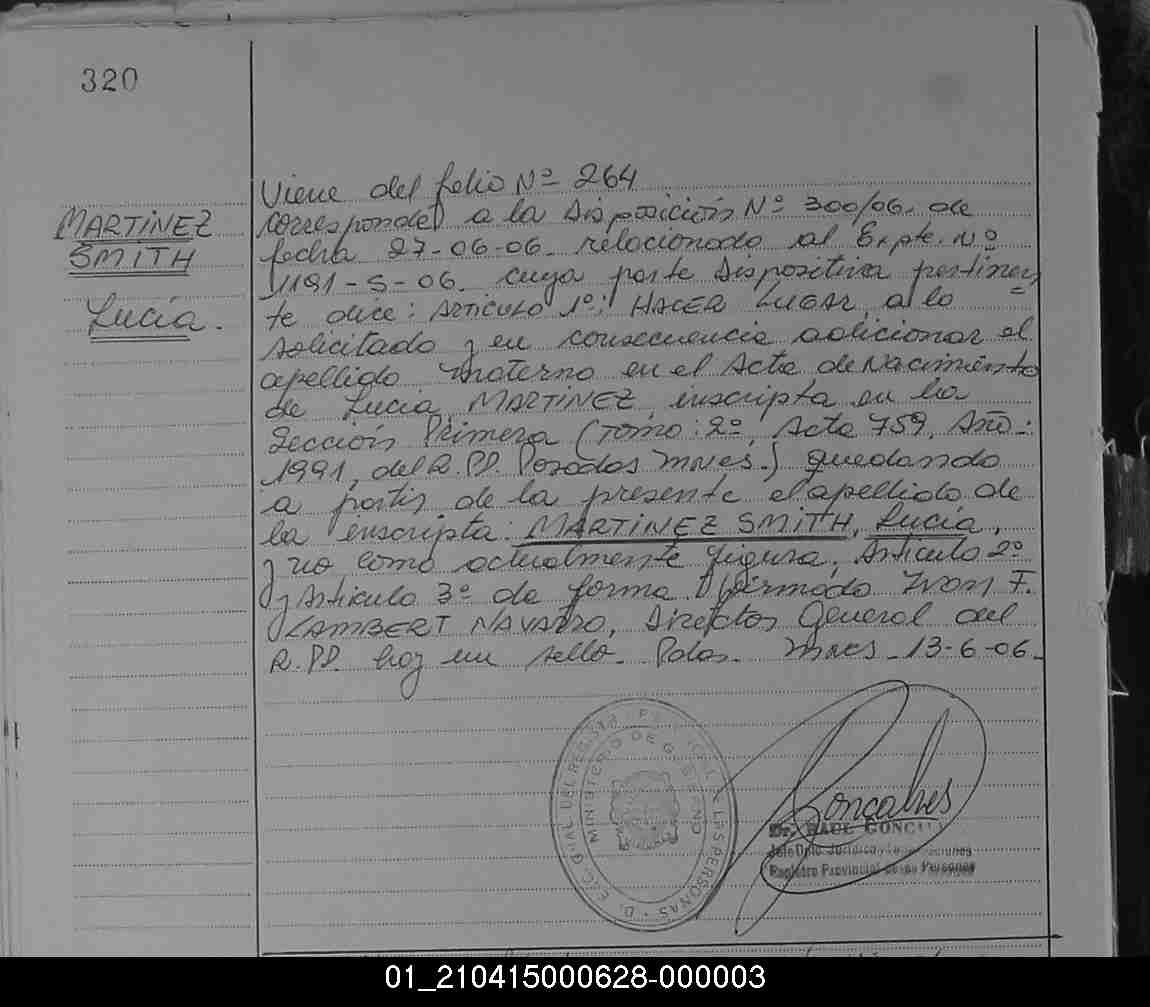 320
MARTINEZ
SMITH
Lucía.
Viene del folio Nº 264
corresponde a la Disposición Nº 300/06. de
fecha 27-06-06. relacionado al Expte. Nº
1191-S-06. cuya parte dispositiva pertinen=
te dice: ARTICULO 1º: HACER LUGAR, a lo
solicitado y en consecuencia adicionar el
apellido materno en el Acta de Nacimiento
de Lucía MARTINEZ, inscripta en la
Sección Primera (Tomo: 2º, Acta 759, Año:
1991, del R.PP. Posadas Mnes.) quedando
a partir de la presente el apellido de
la inscripta: MARTINEZ SMITH, Lucía,
y no como actualmente figura, Artículo 2º
y Artículo 3º de forma. Firmado Ivon F.
LAMBERT NAVARRO, Director General del
R.PP. hay un sello. Pdas. Mnes. 13-6-06.
GRAL. DEL REGISTRO DE LAS PERSONAS
MINISTERIO DE GOBIERNO
Goncalves
Dr. RAUL GONCALVES
Jefe Dpto. Jurídico
Registro Provincial de las Personas
01_210415000628-000003